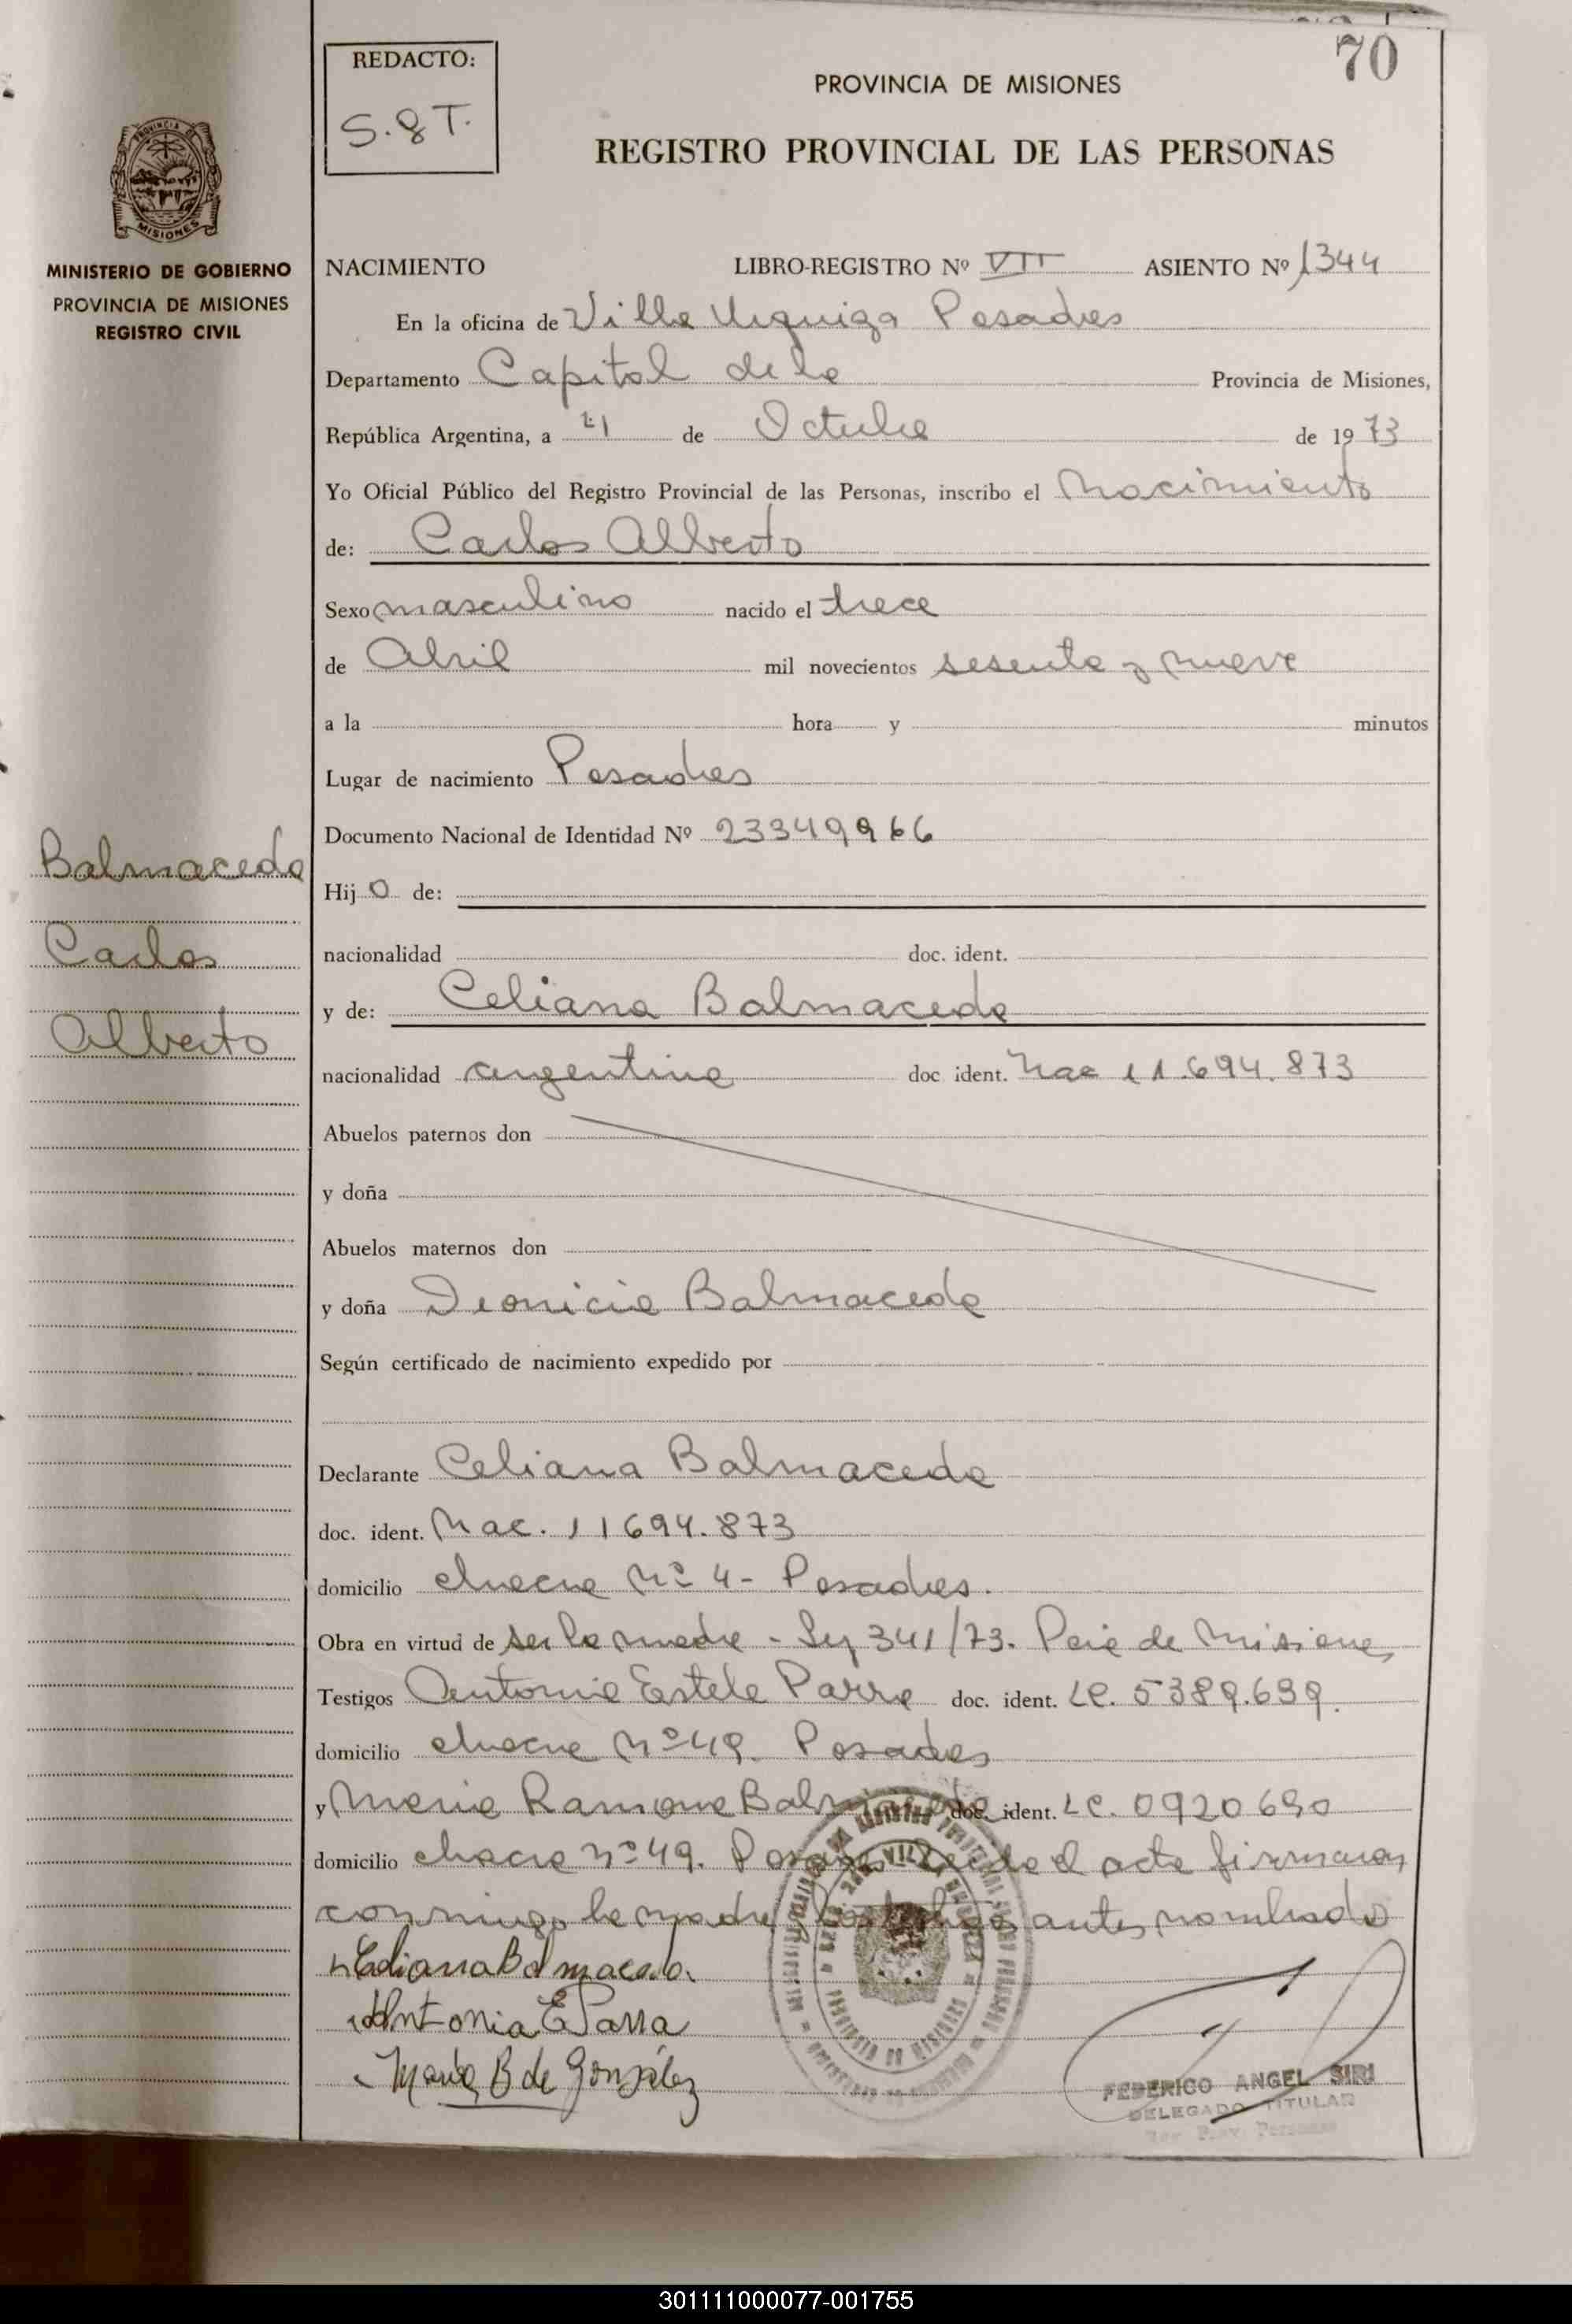 70
REDACTO:
S.G.T.
PROVINCIA DE MISIONES
REGISTRO PROVINCIAL DE LAS PERSONAS
MISIONES
MINISTERIO DE GOBIERNO
PROVINCIA DE MISIONES
REGISTRO CIVIL
NACIMIENTO LIBRO-REGISTRO Nº VII ASIENTO Nº 1344
En la oficina de Villa Urquiza Posadas
Departamento Capital de la Provincia de Misiones,
República Argentina, a de Octubre de 1973
Yo Oficial Público del Registro Provincial de las Personas, inscribo el Nacimiento
de: Carlos Alberto
Sexo masculino nacido el trece
de Abril mil novecientos sesenta y nueve
a la hora y minutos
Lugar de nacimiento Posadas
Documento Nacional de Identidad Nº 23349966
Balmaceda
Carlos
Alberto
Hijo de:
nacionalidad doc. ident.
y de: Celiana Balmaceda
nacionalidad argentina doc. ident. Nac 11.694.873
Abuelos paternos don
y doña
Abuelos maternos don
y doña Dionicia Balmaceda
Según certificado de nacimiento expedido por
Declarante Celiana Balmaceda
doc. ident. Nac. 11694.873
domicilio chacra Nº 4- Posadas.
Obra en virtud de ser la madre - Ley 341/73. Pcia de Misiones
Testigos Antonia Estela Parra doc. ident. LC. 5389.639.
domicilio chacra Nº 49. Posadas
y Maria Ramona Balmaceda doc. ident. LC. 0920690
domicilio chacra nº 49. Posadas Leida el acta firmaron
conmigo la madre y los testigos antes nombrado
Celiana Balmaceda.
Antonia E Parra
Maria B de González
FEDERICO ANGEL SIRI
DELEGADO TITULAR
Reg. Prov. Personas
301111000077-001755